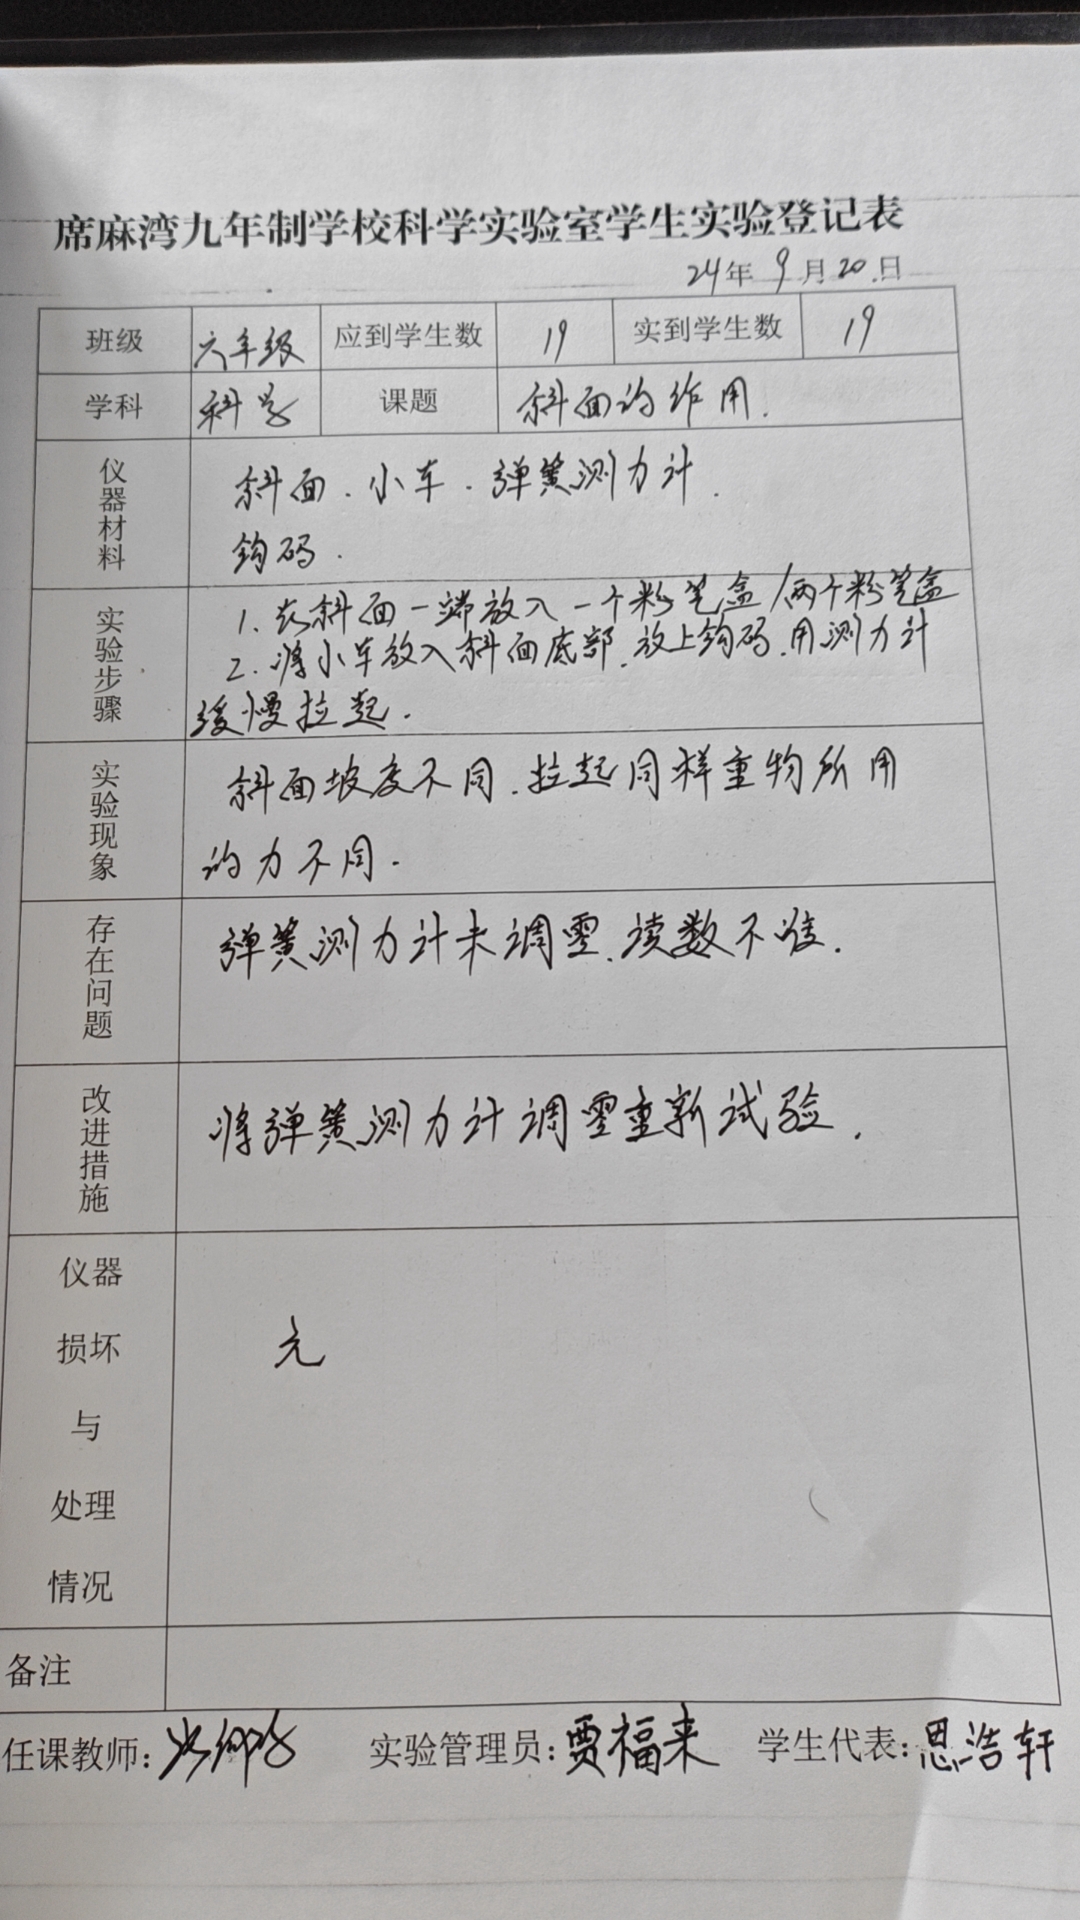 席麻湾九年制学校科学实验室学生实验登记表
24年 9月20.日
班级 六年级 应到学生数 19 实到学生数 19
学科 科学 课题 斜面的作用.
仪器材料
斜面、小车、弹簧测力计、
钩码.
实验步骤
1. 在斜面一端放入一个粉笔盒/两个粉笔盒
2. 将小车放入斜面底部、放上钩码、用测力计
缓慢拉起.
实验现象
斜面坡度不同、拉起同样重物所用
的力不同.
存在问题
弹簧测力计未调零、读数不准.
改进措施
将弹簧测力计调零重新试验.
仪器
损坏
与
处理
情况
无
备注
任课教师: 实验管理员:贾福来 学生代表:恩浩轩